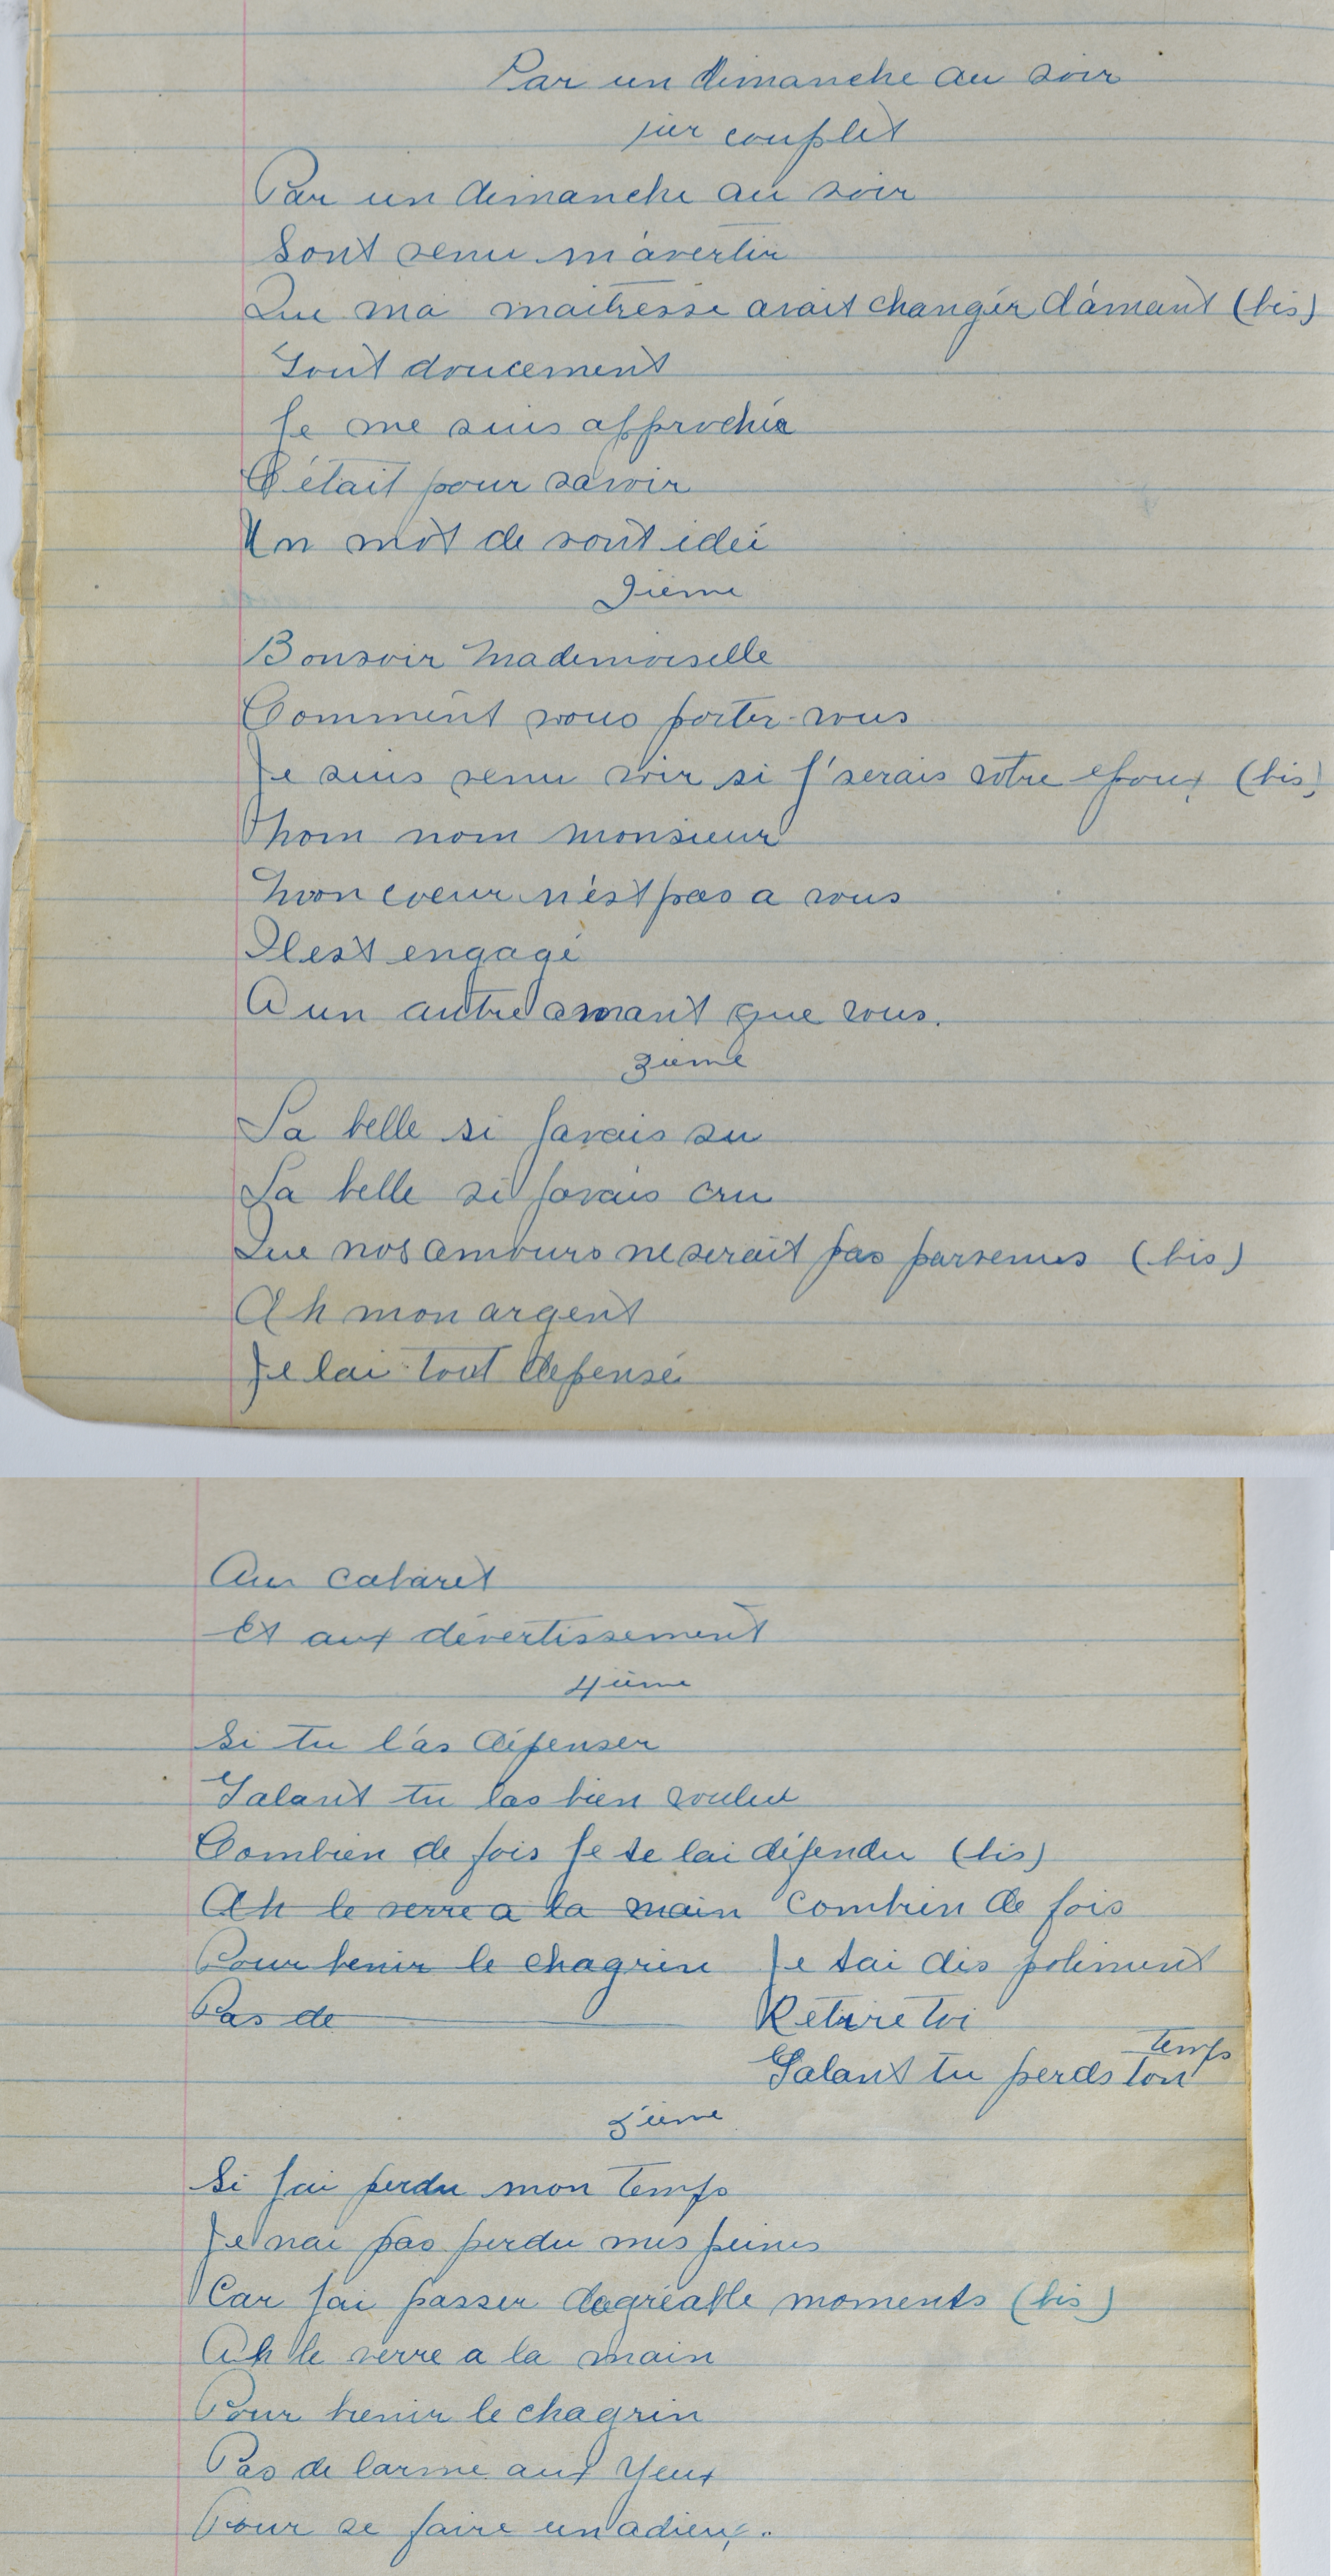 Par un dimanche au soir
1ier couplet
Par un dimanche au soir
Sont venu m'avertir
Que ma maitresse avait changér d'amant (bis)
Tout doucement
Je me suis approchéa
C'était pour savoir
Un mot de sont ideé
2ieme
Bonsoir Mademoiselle
Comment vous porter-vous
Je suis venu voir si j'serais votre epoux (bis)
Nom nom monsieur
Mon coeur n'est pas a vous
Il est engagé
A un autre amant que vous.
3ieme
La belle si javais su
La belle si javais cru
Que nos amours ne serait pas parvenus (bis)
Ah mon argent
Je lai tout depensé
Au cabaret
Et aux dévertissement
4ième
Si tu l'as dépenser
Galant tu las bien voulut
Combien de fois Je te lai défendu (bis)
Ah le verre a la main Combien de fois
Pour benir le chagrin Je tai dis poliment
Pas de Retire toi
Galant tu perds ton temps
5ieme
Si jai perdu mon temps
Je nai pas perdu mes peines
Car jai passer dagréable moments (bis)
Ah le verre a la main
Pour benir le chagrin
Pas de larme aux yeux
Pour se faire un adieux.